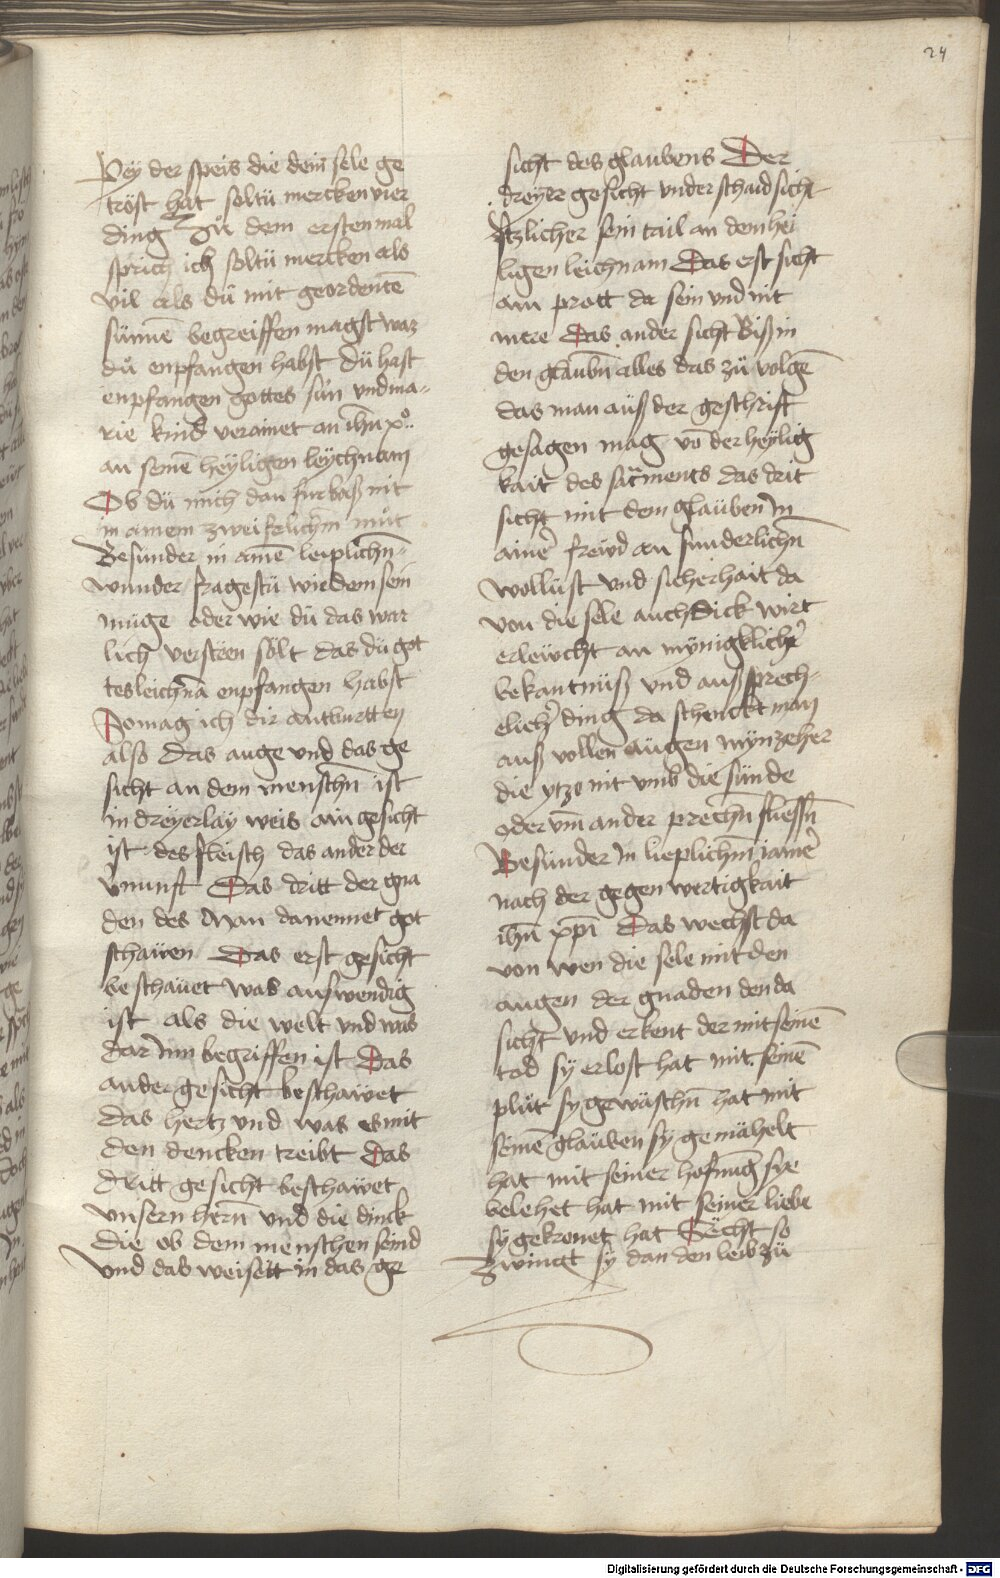 24
Pey der speis die dein sele ge
tröst hat soltü mercken vier
ding Zu̇ dem ersten mal
sprich ich soltü mercken als
vil als dü mit geordentē
sünnē begreiffen magst waz
du̇ enpfangen habst dü hast
enpfangen gottes sün vnd ma-
rie kind veramet an ihū xo
an seinē heyligen leychnam
Ob dü mich dan furbaß nit
in ainem zweifelichm̄ mu̇t
Besunder in ainē lieplichn̄
wunder fragestü wie dem sein
müge oder wie dü das war
lich versteen sölt das dü got
tes leichnā enpfangen habst
So mag ich dir antburtten
also das auge vnd das ge
sicht an dem menschn̄ ist
in dreyerlay weis ain gesicht
ist des fleisch das ander der
vnunft Das dritt der gna
den des Man da nennet got
schauen Das erst gesicht
beschauet was auswendig
ist als die welt vnd was
dar Inn begriffen ist Das
ander gesicht beschawet
das hertz vnd was es mit
den dencken treibt Das
dritt gesicht beschawet
vnsern hern̄ vnd die dinck
die ob dem menschen seind
vnd das weiset in das ge
sicht des glaubens Der
dreyer gesicht vnderschaid sicht
ytzlicher sein tail an dem hei
ligen leichnam Das erst sicht
ain prott da sein vnd nit
mere Das ander sicht Biß in
den glaubn̄ alles das zü volgē
das man auß der geschrift
gesagen mag vō der heylig
kait des sacr̄ments das drit
sicht mit dem glauben In
ainer freud an sunderlichn̄
wollust vnd sicherhait da
von die sele auch dick wirt
erleucht an mynigklicher
bekantnüß vnd auß sprech-
elicher ding da schenckt man
auß vollen augen mynzeher
die ytzo nit vmb die sünde
oder vm̄ ander prechn̄ fliessn̄
Besünder In lieplichm̄ iamer
nach der gegenwertigkait
ihū xp̄i Das wechst da
von wen die sele mit den
augen der gnaden den da
sicht vnd erkent der mit seinē
tod sy erlost hat mit seinē
plüt sy gewäschn̄ hat mit
seinē glauben sy gemähelt
hat mit seiner hofnung sye
belehet hat mit seiner liebe
sy gekronet hat Secht so
zwingt sy dan den leib zü
Digitalisierung gefördert durch die Deutsche Forschungsgemeinschaft - DFG